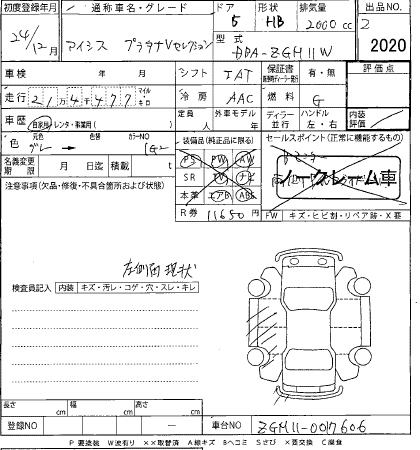 初度登録年月 通称車名・グレード ドア 形状 排気量 出品No.
24/12月 アイシス プラタナVセレクション 5 HB 2000cc 2
型式 DBA-ZGM11W 2020
車検 年 月 シフト IAT 保証書 有・無 評価点
走行 21万4千477 マイル キロ 冷房 AAC 燃料 G
車歴 自家用 レンタ・事業用( ) 定員 人 外車モデル 年 ディーラー 並行 ハンドル 左・右 内装 評価
色 元色 グレー カラーNO 1G2 装備品(純正品に限る) セールスポイント(正常に機能するもの)
名義変更期限 月 日迄 積載 t PS PW AW
注意事項(欠品・修復・不具合箇所および状態) SR TV ナビ ノークレーム車
本革 エアB ABS
R券 11650円 FW キズ・ヒビ割・リペア跡・X要
左側面現状
検査員記入 内装 キズ・汚レ・コゲ・穴・スレ・キレ
長さ cm 幅 cm 高さ cm
登録NO 車台NO ZGM11-0017606
P要塗装 W波有り ××取替済 A線キズ Bヘコミ Sさび ×要交換 C腐食